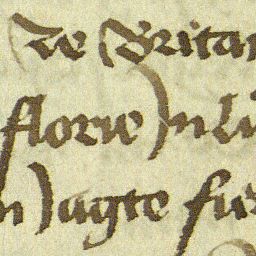 De Britan
florie In lu
n Jagte fue